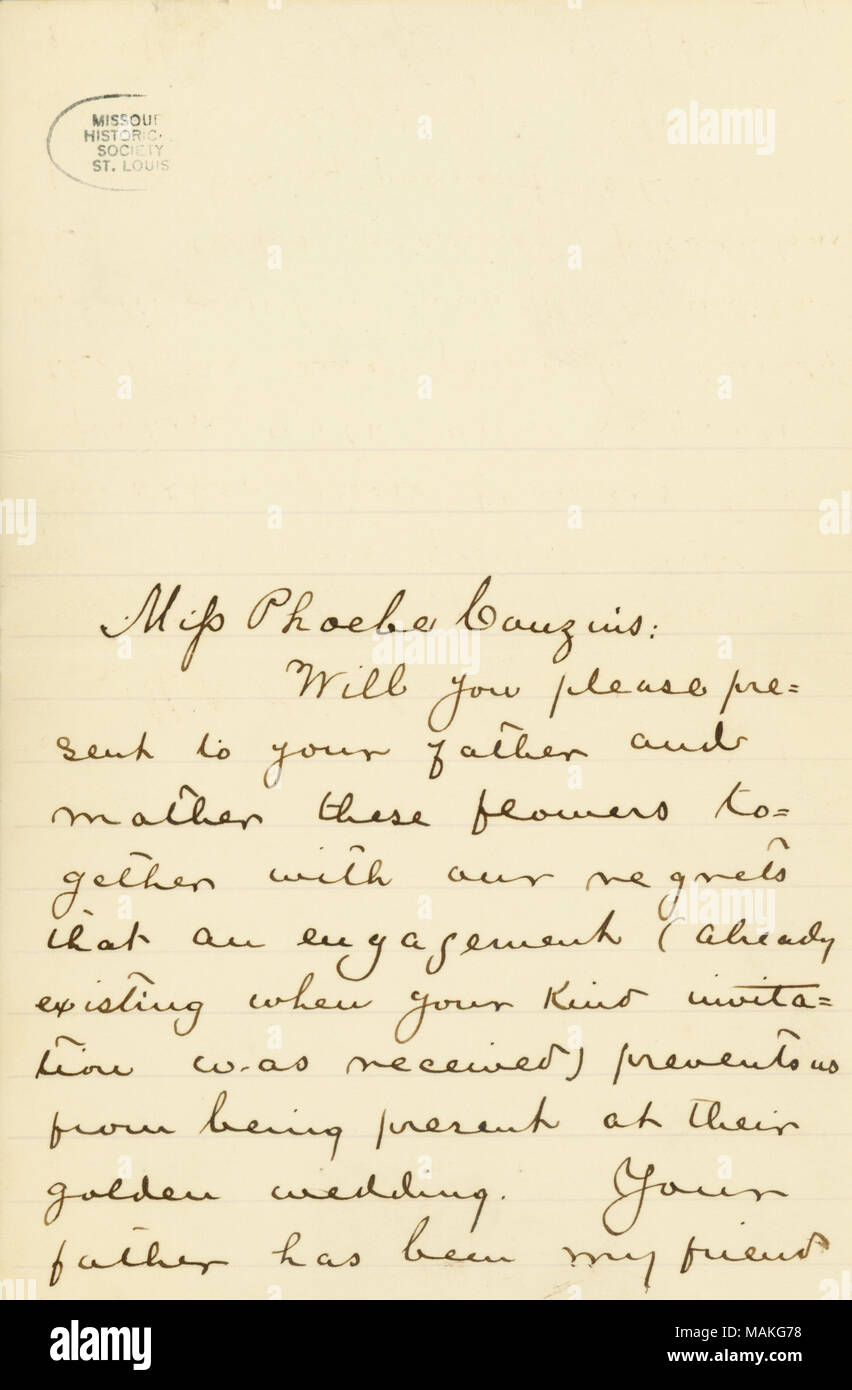 MISSOUR
HISTORIC
SOCIETY
ST. LOUIS
alamy
Miſs Phoebe Couzins:
Will you please pre=
sent to your father and
mother these flowers to=
gether with our regrets
that an engagement (already
existing when your kind invita=
tion was received) prevents us
from being present at their
golden wedding. Your
father has been my friend
alamy
Image ID: MAKG78
www.alamy.com